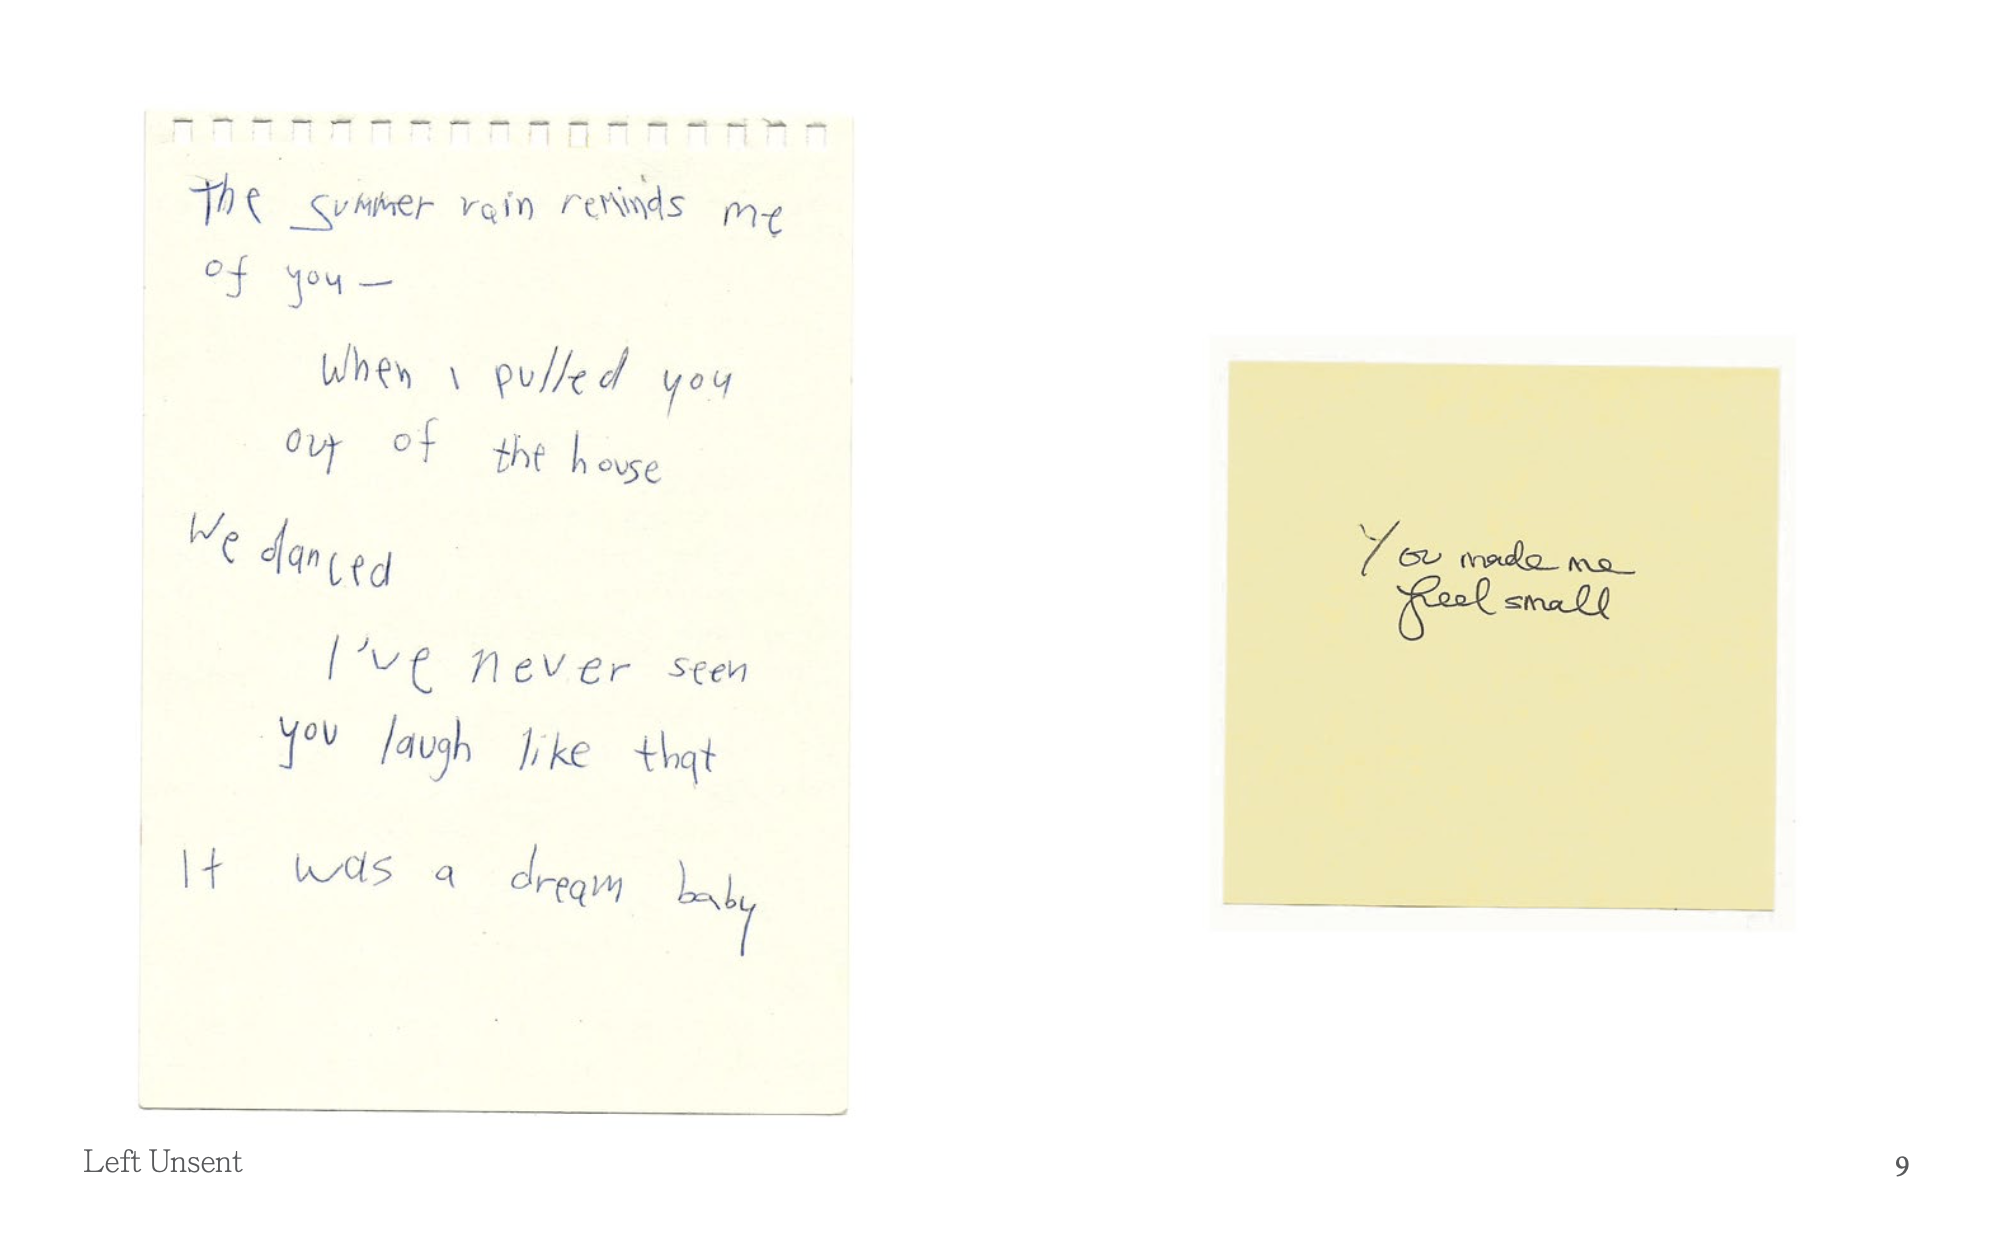 The summer rain reminds me
of you—
When i pulled you
out of the house
We danced
I've never seen
you laugh like that
It was a dream baby
You made me
feel small
Left Unsent
9